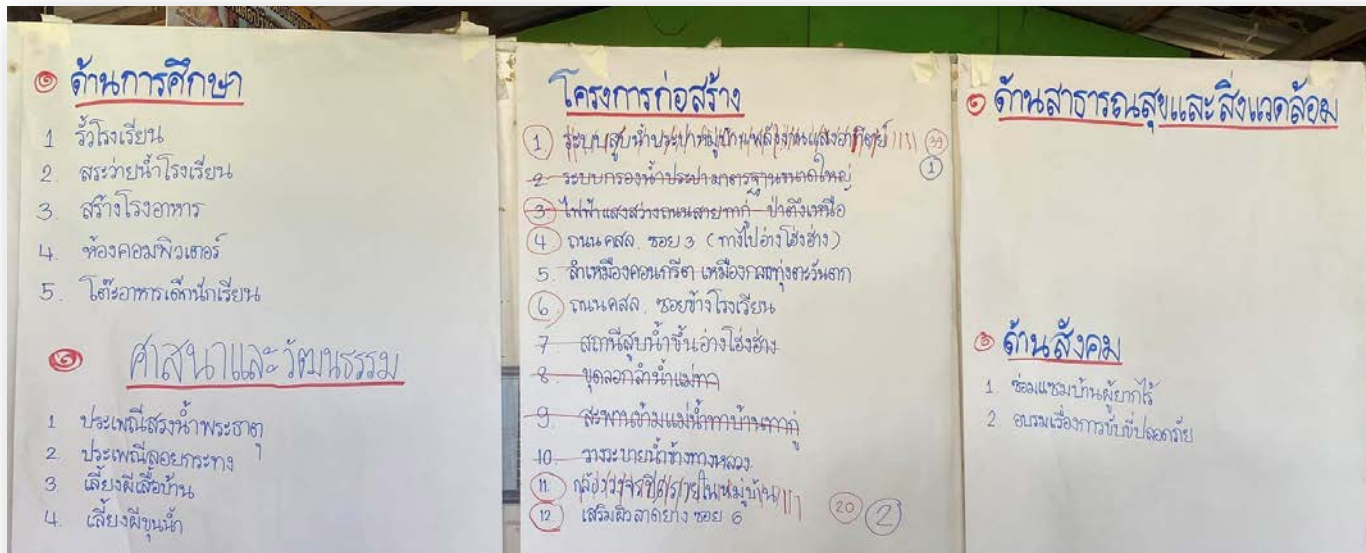 ๑ ด้านการศึกษา
1 รั้วโรงเรียน
2. สระว่ายน้ำโรงเรียน
3. สร้างโรงอาหาร
4. ห้องคอมพิวเตอร์
5. โต๊ะอาหารเด็กนักเรียน
ศาสนาและวัฒนธรรม
1 ประเพณีสรงน้ำพระธาตุ
2. ประเพณีลอยกระทง
3. เลี้ยงผีเสื้อบ้าน
4. เลี้ยงผีขุนน้ำ
โครงการก่อสร้าง
1 ระบบสูบน้ำประปาหมู่บ้านพลังงานแสงอาทิตย์ 39
1
2 ระบบกรองน้ำประปามาตรฐานขนาดใหญ่
3 ไฟฟ้าแสงสว่างถนนสายทากู่ - ป่าตึงเหนือ
4 ถนนคสล. ซอย 3 (ทางไปอ่างโฮ่งฮ่าง)
5. ลำเหมืองคอนกรีต เหมืองกลางทุ่งตะวันตก
6. ถนนคสล. ซอยข้างโรงเรียน
7 สถานีสูบน้ำขึ้นอ่างโฮ่งฮ่าง
8 ขุดลอกลำน้ำแม่ทา
9. สะพานข้ามแม่น้ำทาบ้านทากู่
10. วางระบายน้ำข้างทางหลวง
11. กล้องวงจรปิดภายในหมู่บ้าน
12. เสริมผิวลาดยาง ซอย 6 20 2
ด้านสาธารณสุขและสิ่งแวดล้อม
ด้านสังคม
1. ซ่อมแซมบ้านผู้ยากไร้
2. อบรมเรื่องการขับขี่ปลอดภัย